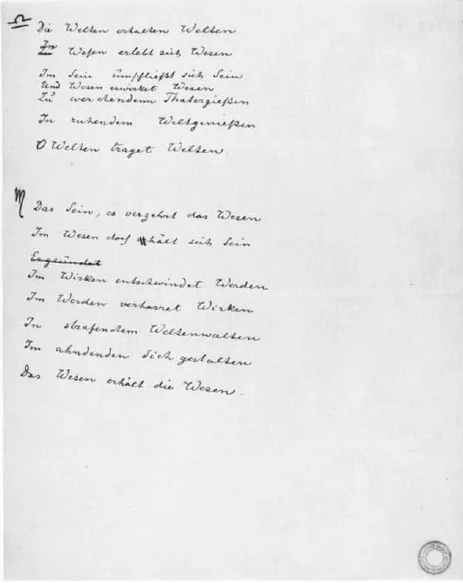 ♎ Die Welten erhalten Welten
In Wesen erlebt sich Wesen
Im Sein umfließt sich Sein
Und Wesen erwirket Wesen
Zu werdendem Thatergießen
In ruhendem Weltgenießen
O Welten traget Welten.
♏ Das Sein, es verzehrt das Wesen
Im Wesen doch hält sich Sein
Im Wirken entschwindet Werden
Im Werden verharret Wirken
In strafendem Weltenwalten
Im ahndenden Sich gestalten
Das Wesen erhält die Wesen.